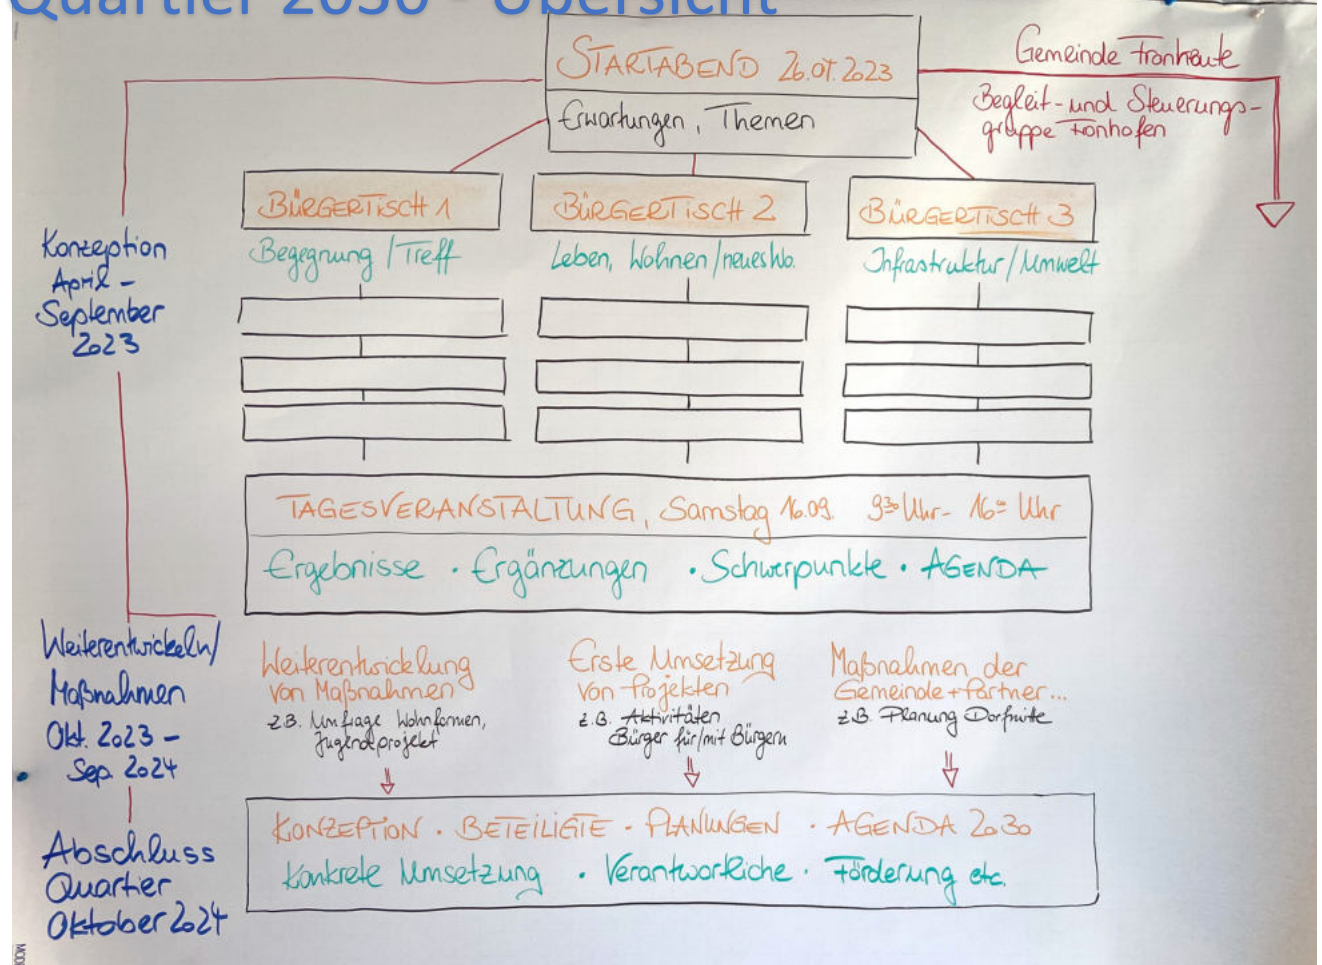 Quartier 2030 - Übersicht
STARTABEND 26.07.2023
Erwartungen, Themen
Gemeinde Fronreute
Begleit- und Steuerungs-
gruppe Fronhofen
BÜRGERTISCH 1
BÜRGERTISCH 2
BÜRGERTISCH 3
Begegnung / Treff
Leben, Wohnen / neues Wo.
Infrastruktur / Umwelt
Konzeption
April -
September
2023
TAGESVERANSTALTUNG, Samstag 16.09. 9³⁰ Uhr - 16⁰⁰ Uhr
Ergebnisse · Ergänzungen · Schwerpunkte · AGENDA
Weiterentwickeln/
Maßnahmen
Okt. 2023 -
Sep. 2024
Weiterentwicklung
von Maßnahmen
z.B. Umfrage Wohnformen,
Jugendprojekt
Erste Umsetzung
von Projekten
z.B. Aktivitäten
Bürger für/mit Bürgern
Maßnahmen der
Gemeinde + Partner...
z.B. Planung Dorfmitte
KONZEPTION · BETEILIGTE · PLANUNGEN · AGENDA 2030
Konkrete Umsetzung · Verantwortliche · Förderung etc.
Abschluss
Quartier
Oktober 2024